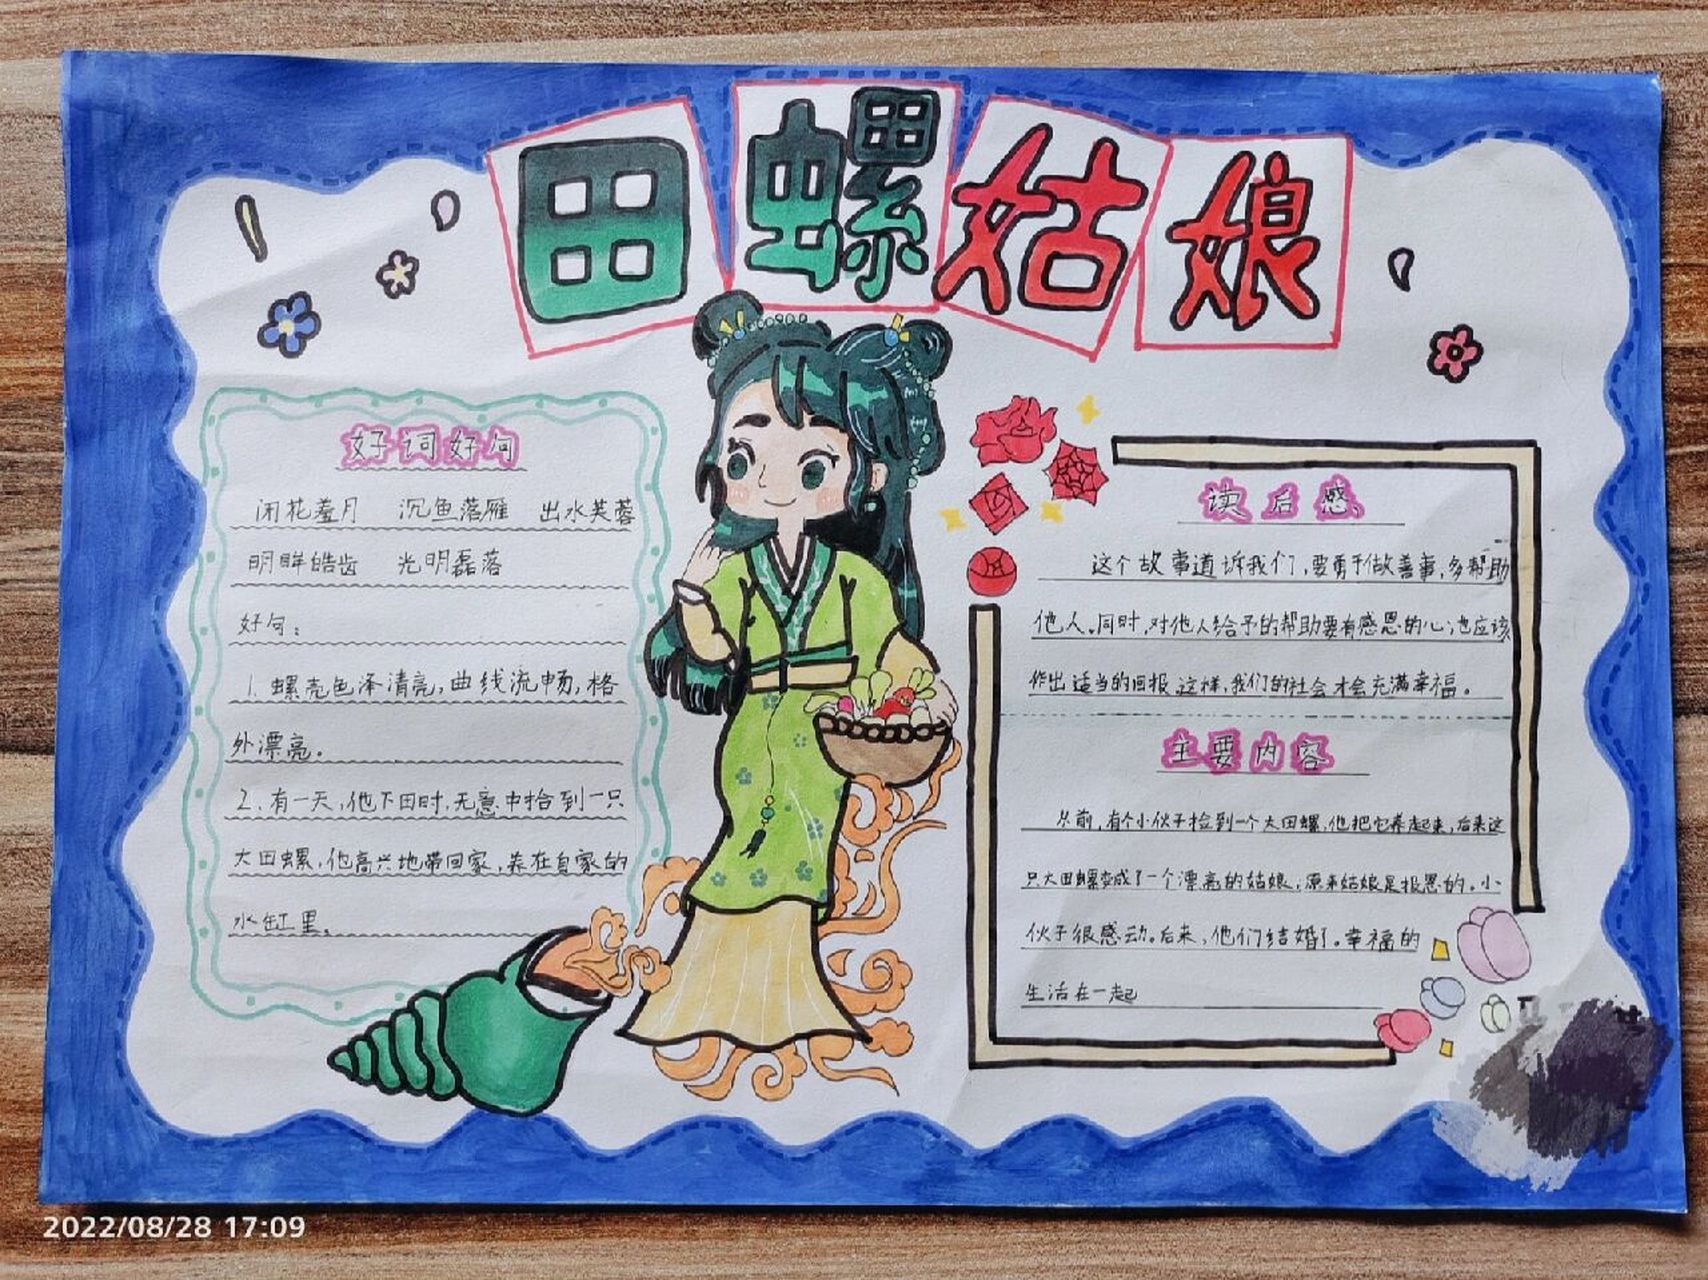 田螺姑娘
好词好句
闭花羞月 沉鱼落雁 出水芙蓉
明眸皓齿 光明磊落
好句：
1. 螺壳色泽清亮,曲线流畅,格
外漂亮。
2. 有一天,他下田时,无意中拾到一只
大田螺,他高兴地带回家,养在自家的
水缸里。
读后感
这个故事道诉我们,要勇于做善事,多帮助
他人。同时,对他人给予的帮助要有感恩的心,也应该
作出适当的回报.这样,我们的社会才会充满幸福。
主要内容
从前,有个小伙子捡到一个大田螺,他把它养起来,后来这
只大田螺变成了一个漂亮的姑娘,原来姑娘是报恩的。小
伙子很感动。后来,他们结婚了。幸福的
生活在一起
2022/08/28 17:09